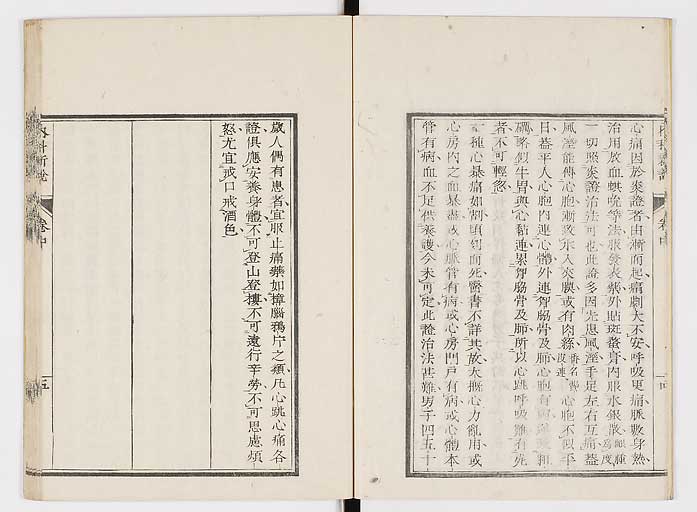 心痛因於炎證者由漸而起痛劇大不安呼吸更痛脈數身熱
治用放血蜞角等法服發表藥外貼斑蝥膏內服水銀散
一切照炎證治法可也此證多因先患風溼手足左右互痛蓋
風溼能傳心胞漸致水入夾膜或有肉絲心胞不似平
日蓋平人心胞內連心體外連胷脇骨及肺心胞有
礪略似牛胃與心黏連累胷脇骨及肺所以心跳呼吸難有先
者不可輕忽
一種心暴痛如割頃刻而死醫書不詳其故大概心力亂用或
心房內之血暴盡或心脈管有病或心房門戶有病或心體本
管有病血不足供養護今未可定此證治法甚難男子四五十
歲人偶有患者宜服止痛藥如樟腦鴉片之類凡心跳心痛各
證俱應安養身體不可登山登樓不可遠行辛勞不可思慮煩
怒尤宜戒口戒酒色
內科新說
卷中
五